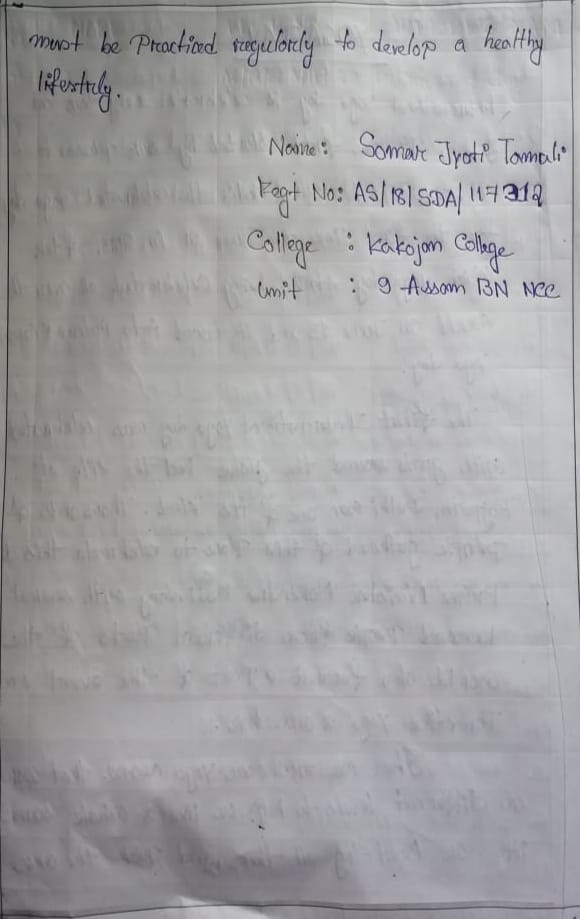 must be Practiced regularly to develop a healthy
lifestyly.
Name: Somar Jyoti Tamuli
Regt No: AS/18/SDA/117312
College : Kakojan College
Unit : 9 Assam BN NCC